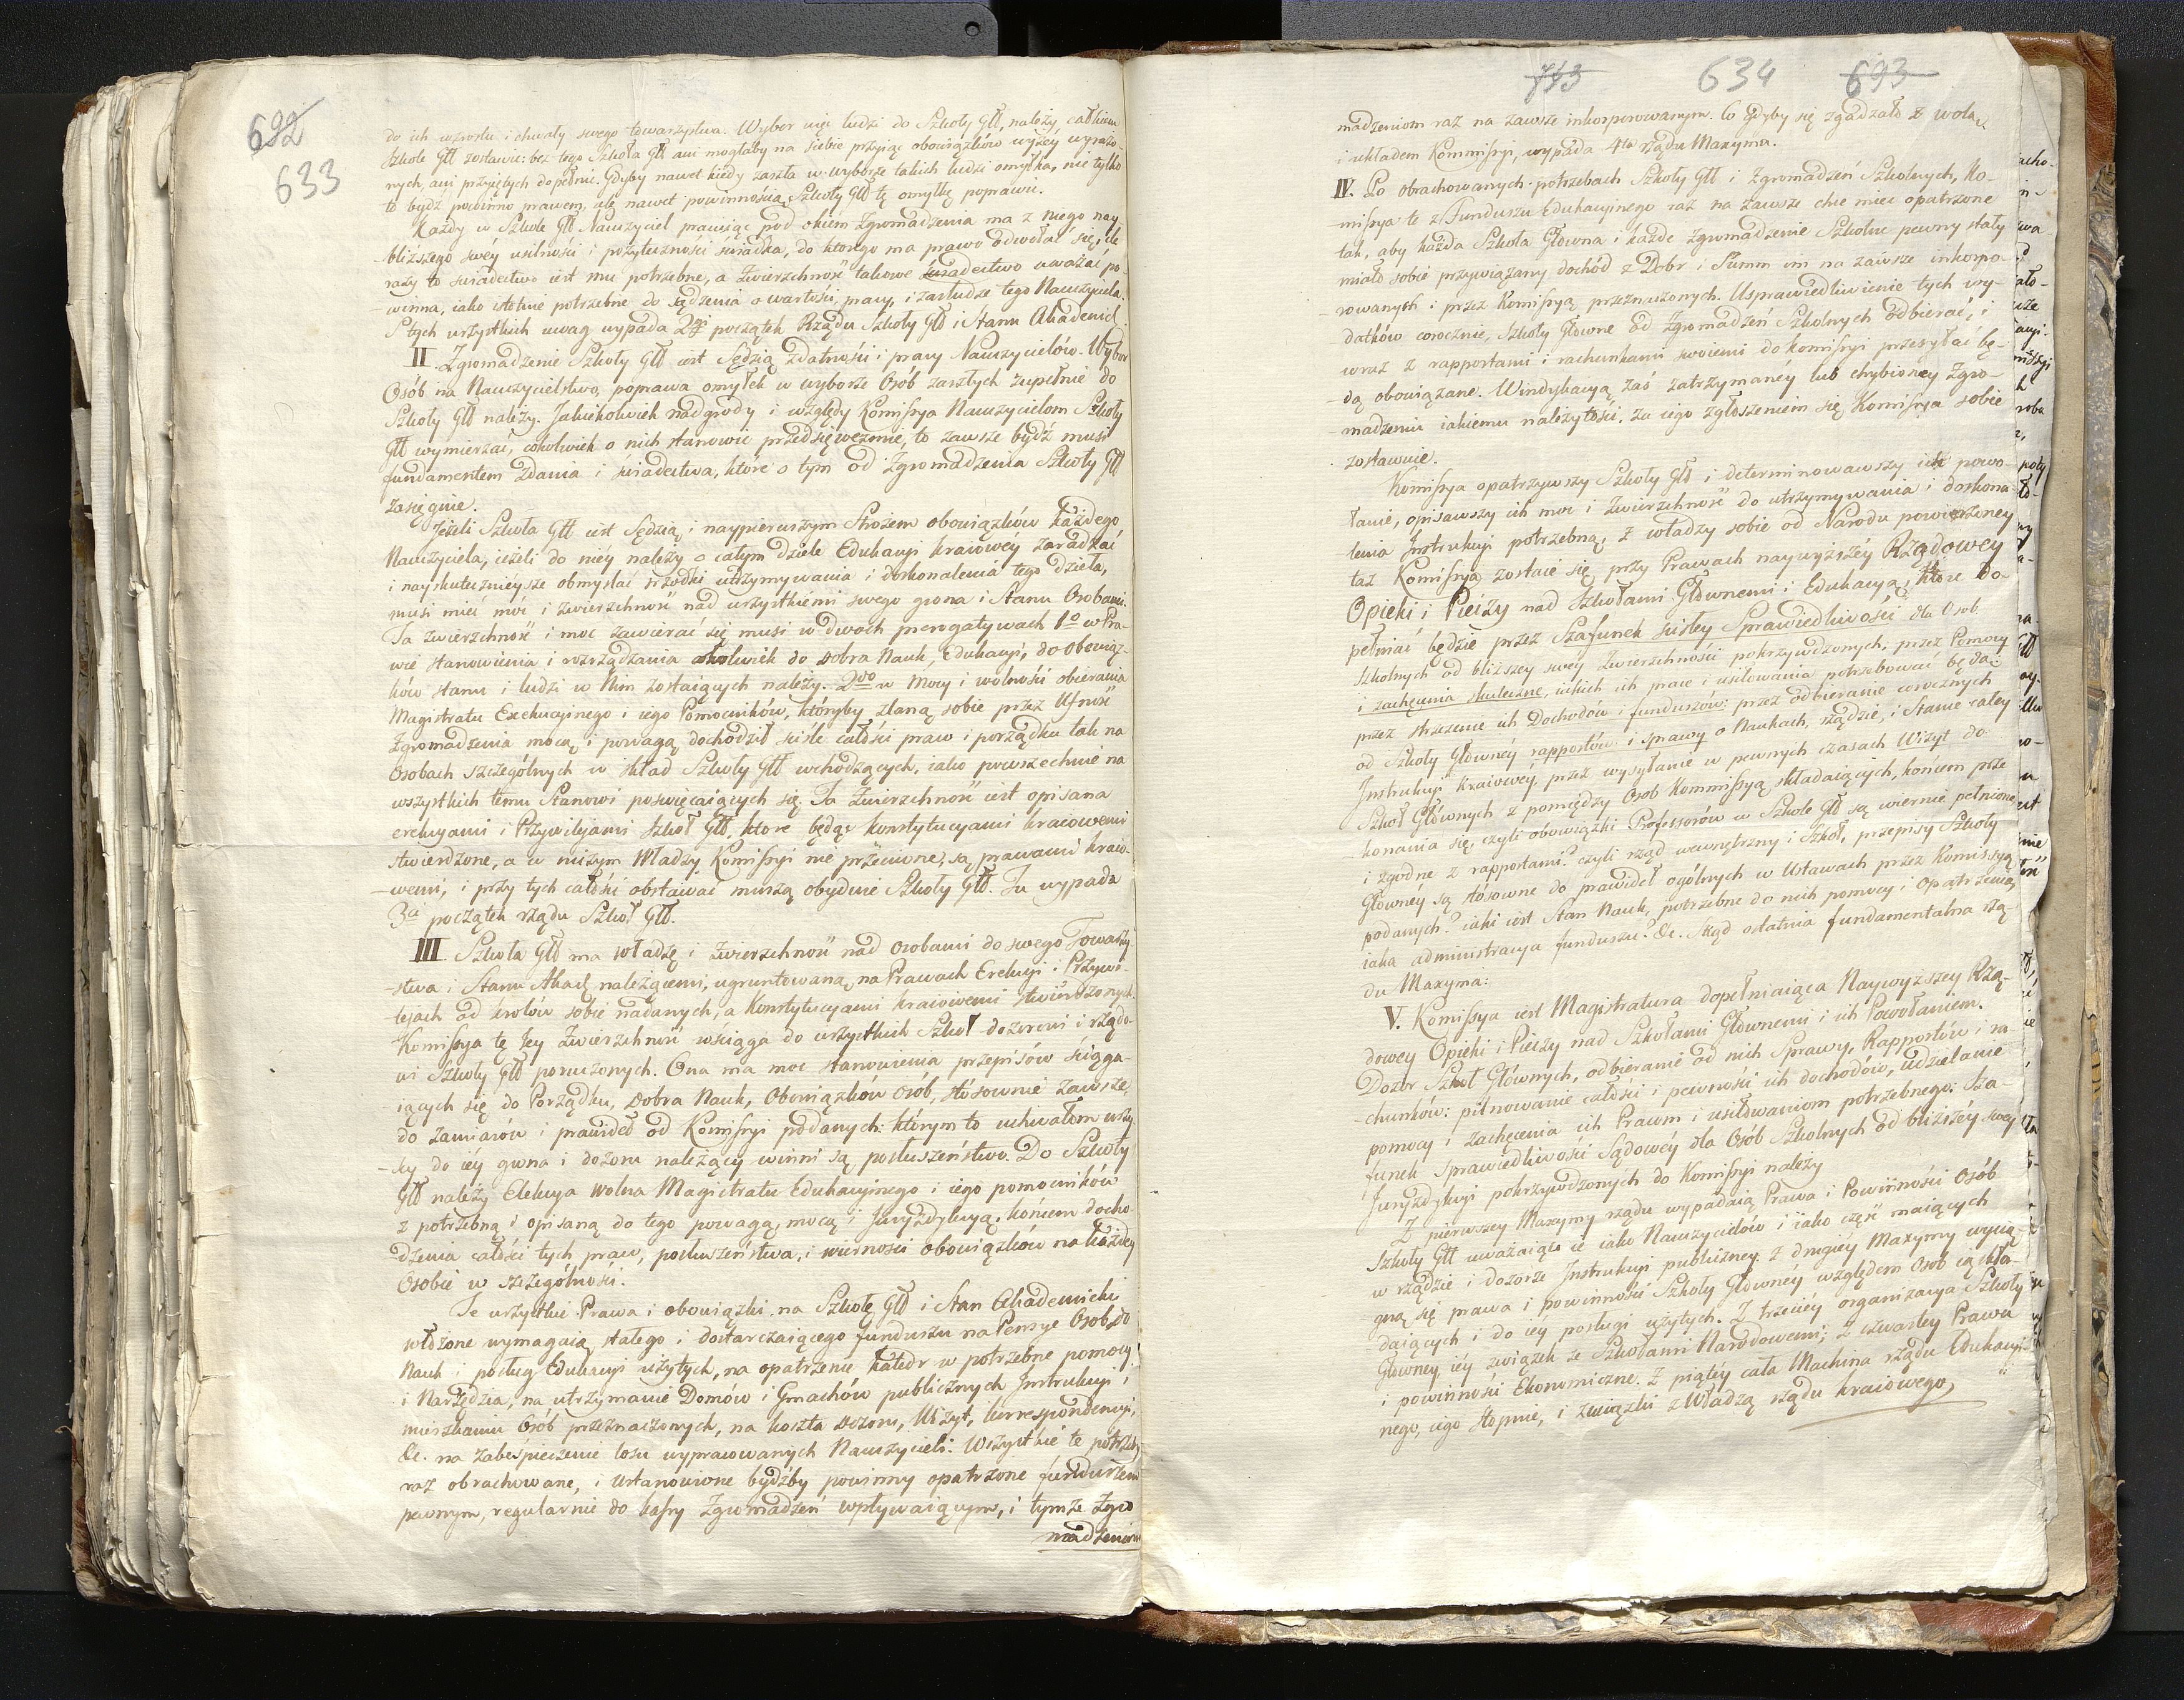 692
633
do ich wzrostu i chwały swego towarzystwa. Wybor więc ludzi do Szkoły Głł, należy całkiem
Szkole Głł zostawić: bez tego Szkoła Głł ani mogłaby na siebie przyiąc obowiązków wyżéy wyrażo-
nych, ani przyiętych dopełnić. Gdyby nawet kiedy zaszła w wyborze takich ludzi omyłka, nie tylko
to bydź powinno prawem, ale nawet powinnością Szkoły Głł tę omyłkę poprawić.
Każdy w Szkole Głł Nauczyciel pracuiąc pod okiem Zgromadzenia ma z niego nay-
-bliższego swéy usilności i pożyteczności świadka, do ktorego ma prawo odwołać się, ile
razy to świadectwo iest mu potrzebne, a Zwierzchność takowe świadectwo uważać po-
-winna, iako istotnie potrzebne do sądzenia o wartości, pracy, i zasłudze tego Nauczyciela.
S tych wszystkich uwag wypada 2gi początek Rządu Szkoły Głł i Stanu Akademick
II. Zgromadzenie Szkoły Głł iest Sędzią zdatności i pracy Nauczycielów. Wybor
Osób na Nauczycielstwo, poprawa omyłek w wyborze Osób zaszłych zupełnie do
Szkoły Głł należy. Jakiekolwiek nadgrody i względy Komissya Nauczycielom Szkoły
Głł wymierzać, cokolwiek o nich stanowić przedsięwezmie, to zawsze bydź musi
fundamentem Zdania i świadectwa, które o tym od Zgromadzenia Szkoły Głł
zasięgnie.
Jeżeli Szkoła Głł iest Sędzią i naypierwszym Strożem obowiązków każdego
Nauczyciela, ieżeli do niéy należy o całym dziele Edukacyi kraiowéy zaradzać
i nayskuteczniéysze obmyślać srzodki utrzymywania i doskonalenia tego dzieła,
musi mieć moc i zwierzchność nad wszystkiemi swego grona i Stanu Osobami.
Ta zwierzchność i moc zawierać się musi w dwoch prerogatywach 1o w Pra-
wie stanowienia i rozrządzania cokolwiek do dobra Nauk, Edukacyi, do obowiąz-
ków stanu i ludzi w Nim zostaiących należy. 2do w Mocy i wolności obierania
Magistratu Exekucyinego i iego Pomocników, któryby zlaną sobie przez Ufność
Zgromadzenia mocą i powagą dochodził ściśle całości praw i porządku tak na
Osobach szczególnych w skład Szkoły Głł wchodzących, iako powszechnie na
wszystkich temu Stanowi poswięcaiących się. Ta Zwierzchność iest opisana
erekcyami i Przywileiami Szkoł Głł, ktore będąc konstytucyami kraiowemi
stwierdzone, a w niczym Władzy Komissyi nie przeciwne, są prawami kraio-
-wemi, i przy tych całości obstawać muszą obydwie Szkoły Głł. Tu wypada
3ci początek rządu Szkoł Głł.
III. Szkoła Głł ma władzę i zwierzchność nad osobami do swego Towarzy-
-stwa i Stanu Akad. należącemi, ugruntowaną na Prawach Erekcyi i Przywi-
leiach od krolów sobie nadanych, a Konstytucyami kraiowemi stwierdzonych.
Komissya tę Jey Zwierzchność wściąga do wszystkich Szkoł dozorowi i rządo-
wi Szkoły Głł poruczonych. Ona ma moc stanowienia przepisów ściąga-
iących się do Porządku, dobra Nauk, Obowiązków osób, stósownie zawsze
do zamiarów i prawideł od Komissyi podanych: którym to uchwałom wszy-
-scy do iéy grona i dozoru należący winni są posłuszeństwo. Do Szkoły
Głł należy Elekcya wolna Magistratu Edukacyinego i iego pomocników
z potrzebną i opisaną do tego powagą, mocą i Juryzdykcyą, końcem docho-
-dzenia całości tych praw, posłuszeństwa, i wierności obowiązków na każdey
Osobie w szczególności.
Te wszystkie Prawa i obowiązki na Szkołę Głł i Stan Akademicki
włożone wymagaią stałego i dostarczaiącego funduszu na Pensye Osob do
Nauk i posług Edukacyi użytych, na opatrzenie katedr w potrzebne pomocy
i Narzędzia, na utrzymanie Domów i Gmachów publicznych Instrukcyi i
mieszkaniu Osób przeznaczonych, na koszta dozoru, Wizyt, korrespondencyi,
&c. na zabespieczenie losu wypracowanych Nauczycieli. Wszystkie te potrzeby
raz obrachowane, i ustanowione bydźby powinny opatrzone funduszem
pewnym, regularnie do kassy Zgromadzeń wpływaiącym, i tymże Zgro
madzeniom
743 634 693
madzeniom raz na zawsze inkorporowanym. Co gdyby się zgadzało z wolą
i układem Kommissyi, wypada 4ta rządu Maxyma.
IV. Po obrachowanych potrzebach Szkoły Głł i Zgromadzeń Szkolnych, Ko-
missya te z Funduszu Edukacyinego raz na zawsze chce mieć opatrzone
tak, aby każda Szkoła Główna i każde zgromadzenie Szkolne pewny stały
miało sobie przywiązany dochód z Dobr i Summ im na zawsze inkorpo-
-rowanych i przez Komissyą przeznaczonych. Usprawiedliwienie tych wy-
datków corocznie, Szkoły Główne od Zgromadzeń Szkolnych odbierać, i
wraz z rapportami i rachunkami swoiemi do komissyi przesyłać bę-
-dą obowiązane. Windykacyą zaś zatrzymaney lub chybioney Zgro-
-madzeniu iakiemu należytości, za iego zgłoszeniem się Komissya sobie
zostawuie.
Komissya opatrzywszy Szkoły Głł i determinowawszy ich powo-
łanie, opisawszy ich moc i Zwierzchność do utrzymywania i doskona-
lenia Instrukcyi potrzebną, z władzy sobie od Narodu powierzoney
taż Komissya zostaie się przy Prawach naywyższéy Rządowey
Opieki i Pieczy nad Szkołami Głównemi i Edukacyą, które do-
pełniać będzie przez Szafunek ścisłey Sprawiedliwości dla Osob
Szkolnych od bliższey swéy Zwierzchności pokrzywdzonych, przez Pomocy
i zachęcenia skuteczne, iakich ich prace i usiłowania potrzebować będą:
przez strzeżenie ich Dochodów i funduszów: przez odbieranie corocznych
od Szkoły Głównéy rapportów i sprawy o Naukach, rządzie, i Stanie całey
Instrukcyi kraiowéy, przez wysyłanie w pewnych czasach Wizyt do
Szkoł Głównych z pomiędzy Osob Kommissyą składaiących, końcem prze
konania się, czyli obowiązki Professorów w Szkole Głł są wiernie pełnione,
i zgodne z rapportami? czyli rząd wewnętrzny i Szkoł, przepisy Szkoły
Głównéy są stósowne do prawideł ogólnych w Ustawach przez Komissyą
podanych? iaki iest Stan Nauk, potrzebne do nich pomocy i opatrzenia,
iaka administracya funduszu? &c. Skąd ostatnia fundamentalna rzą-
du Maxyma:
V. Komissya iest Magistratura dopełniaiąca Naywyższey Rzą-
dowey Opieki i Pieczy nad Szkołami Głównemi i ich Powołaniem.
Dozor Szkoł Głównych, odbieranie od nich Sprawy, Rapportów i ra-
-chunków: pilnowanie całości i pewności ich dochodów, udzielanie
pomocy i zachęcenia ich Pracom i usiłowaniom potrzebnego: sza-
funek Sprawiedliwości Sądowéy dla Osób Szkolnych od bliższéy swey
Juryzdykcyi pokrzywdzonych do Komissyi należy
Z pierwszey Maxymy rządu wypadaią Prawa i Powinności Osób
Szkoły Głł uważaiąc ie iako Nauczycielów i iako część maiących
w rządzie i dozorze Instrukcyi publiczney. z drugiéy Maxymy wycią-
gną się prawa i powinności Szkoły Głównéy względem Osob ią skła-
daiących i do iéy posługi użytych. Z trzeciéy organizacya Szkoły
Główney, iéy związek ze Szkołami Narodowemi; z czwartey Prawa
i powinności Ekonomiczne. Z piątéy cała Machina rządu Edukacyi-
nego, iego stopnie, i związki z Władzą rządu kraiowego.